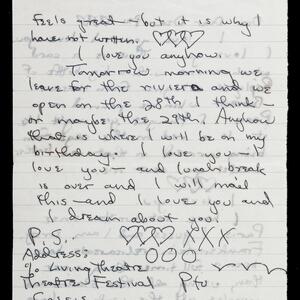 Feels great - but it is why I
have not written. ♡♡♡♡
I love you anyhow.
Tomorrow morning we
leave for the riviera and we
open on the 28th I think -
or maybe the 29th. Anyhow
that is where I will be on my
birthday. I love you - I
love you - and lunch break
is over and I will mail
this - and I love you and
I dream about you.
P.S. ♡♡♡ XXX
Address: OOO
℅ Living Theatre
Theatre Festival